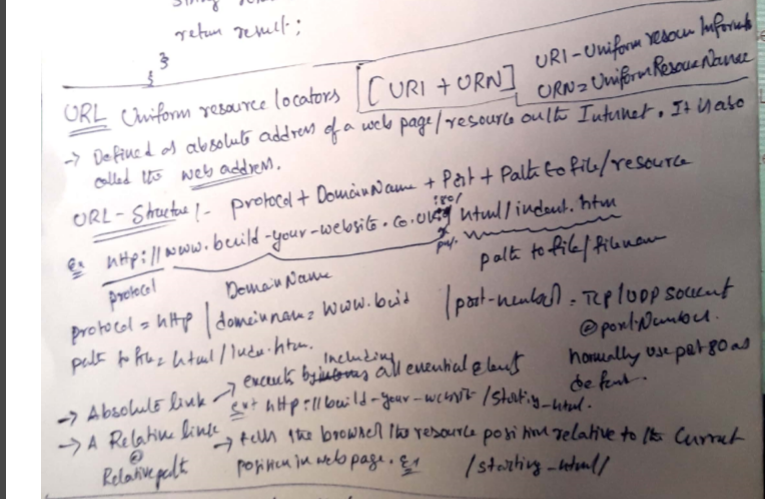 retun result;
}
}
URL Uniform resource locators [URI + URN] URI-Uniform resoun Informati
URN = Uniform Resour Name
→ Defined as absolute address of a web page/resource on the Internet. It is also
called the web address.
URL-Structure:- protocol + Domain Name + Port + Path to file/resource
Ex http://www.build-your-website.co.uk :80/ html/indent.htm
protocol Domain Name path to file/filename
protocol = http | domain name = www.buid | port-number) = TCP/UDP
@ port-Number.
path to file = html/inde.htm. normally use port 80 as
→ Absolute link → including all essential elent
Ex+ http://build-your-website/starting-html.
→ A Relative link → tells the browser the resource position relative to the current
@
Relative path position in web page. Ex /starting-html/